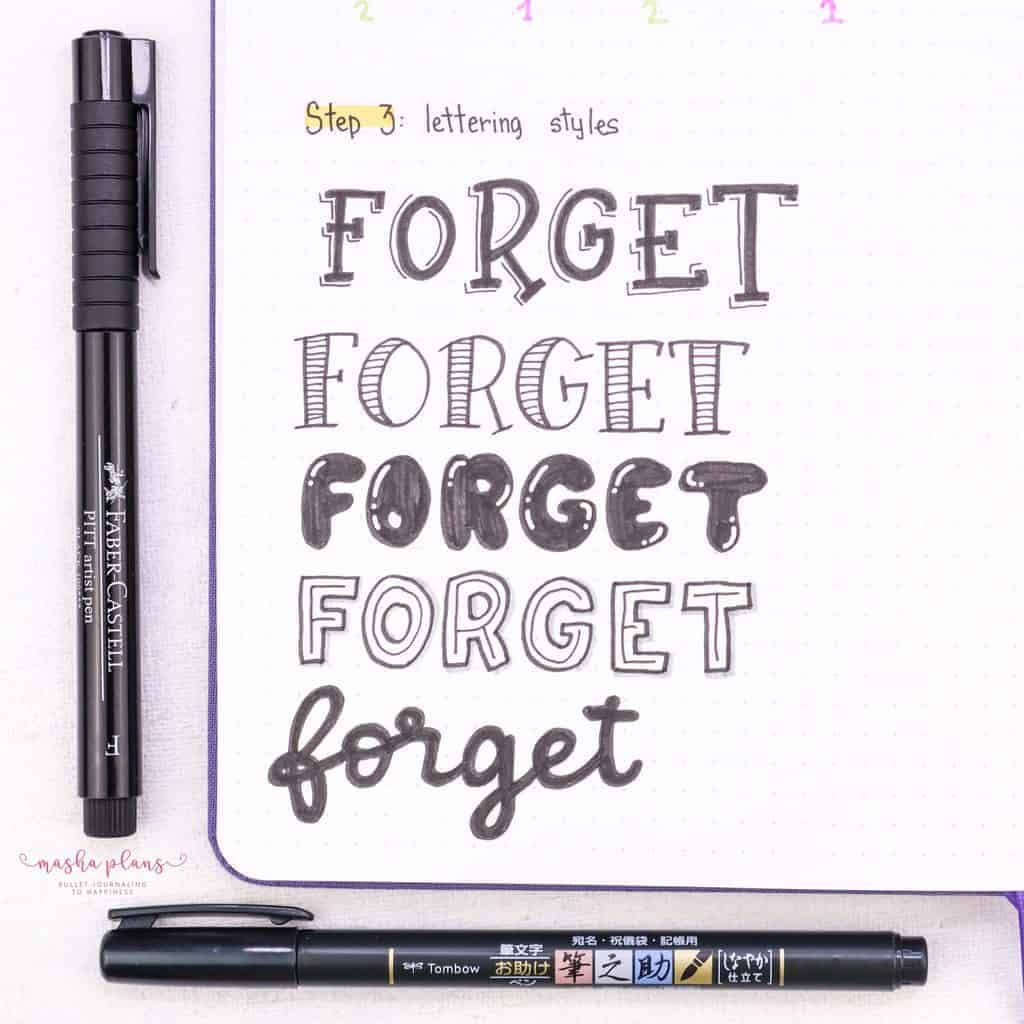 2 1 2 2
Step 3: lettering styles
FORGET
FORGET
FORGET
FORGET
forget
FABER-CASTELL
PITT artist pen
F
masha plans
BULLET JOURNALING
TO HAPPINESS
宛名・祝儀袋・記帳用
Tombow
筆文字
お助け
ペン
筆之助
しなやか
仕立て